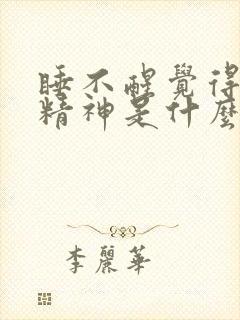 睡不醒覺得
精神是什麼
李麗華